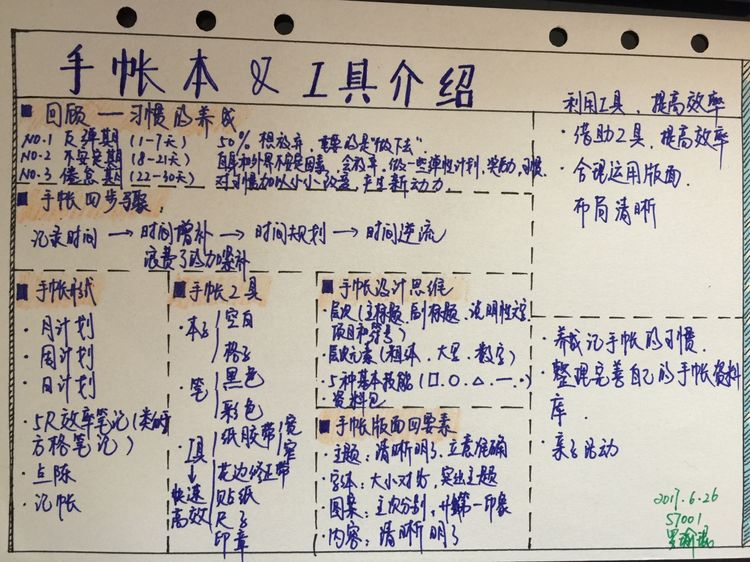 手帐本 & 工具介绍
回顾 — 习惯的养成
NO.1 反弹期 (1-7天) 50% 想放弃,重要的是"做下去".
NO.2 不安定期 (8-21天) 自身和外界不安定因素,会放弃,做一些弹性计划,奖励,习惯.
NO.3 倦怠期 (22-30天) 对习惯加以小小改变,产生新动力.
手帐四步骤:
记录时间 → 时间增补 → 时间规划 → 时间逆流
浪费了的加深补
手帐形式
· 月计划
· 周计划
· 日计划
· 5R效率笔记(类似
方格笔记)
· 点阵
· 记帐
手帐工具
· 本子 空白
格子
· 笔 黑色
彩色
· 工具 纸胶带 宽
窄
↓ 花边修正带
快速 贴纸
高效 尺子
印章
手帐设计思维
· 层次(主标题、副标题、说明性文字
项目和符号)
· 层次元素(粗体、大写、数字)
· 5种基本技能(□.O.△.—.·)
· 资料包
手帐版面四要素
· 主题:清晰明了,立意准确
· 字体:大小对比,突出主题
· 图案:主次分别,升第一印象
· 内容:清晰明了
利用工具,提高效率
· 借助工具,提高效率
· 合理运用版面,
布局清晰
· 养成记手帐的习惯.
· 整理完善自己的手帐资料
库.
· 亲子活动
2017.6.26
57001